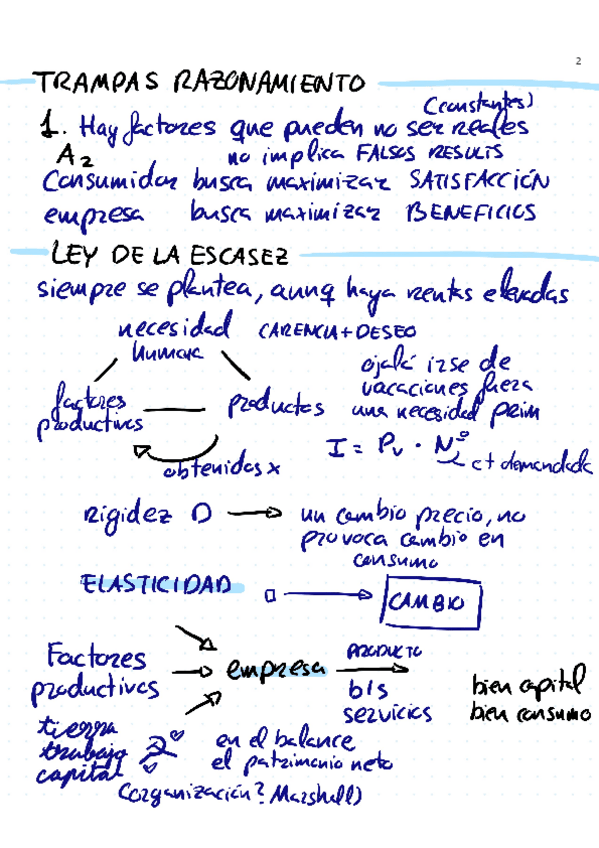 2
TRAMPAS RAZONAMIENTO
(constantes)
1. Hay factores que pueden no ser reales
A2 no implica FALSOS RESULTS
Consumidor busca maximizar SATISFACCIÓN
empresa busca maximizar BENEFICIOS
LEY DE LA ESCASEZ
siempre se plantea, aunq haya rentas elevadas
necesidad CARENCIA + DESEO
humana
ojalá irse de
vacaciones fuera
una necesidad prim
factores
productivos
productos
obtenidos x
I = Pv · Nº
ct demandada
rigidez D → un cambio precio, no
provoca cambio en
consumo
ELASTICIDAD □ → CAMBIO
Factores
productivos
→ empresa →
PRODUCTO
b/s
servicios
bien capital
bien consumo
tierra
trabajo ☭
capital
en el balance
el patrimonio neto
(organización? Marshall)